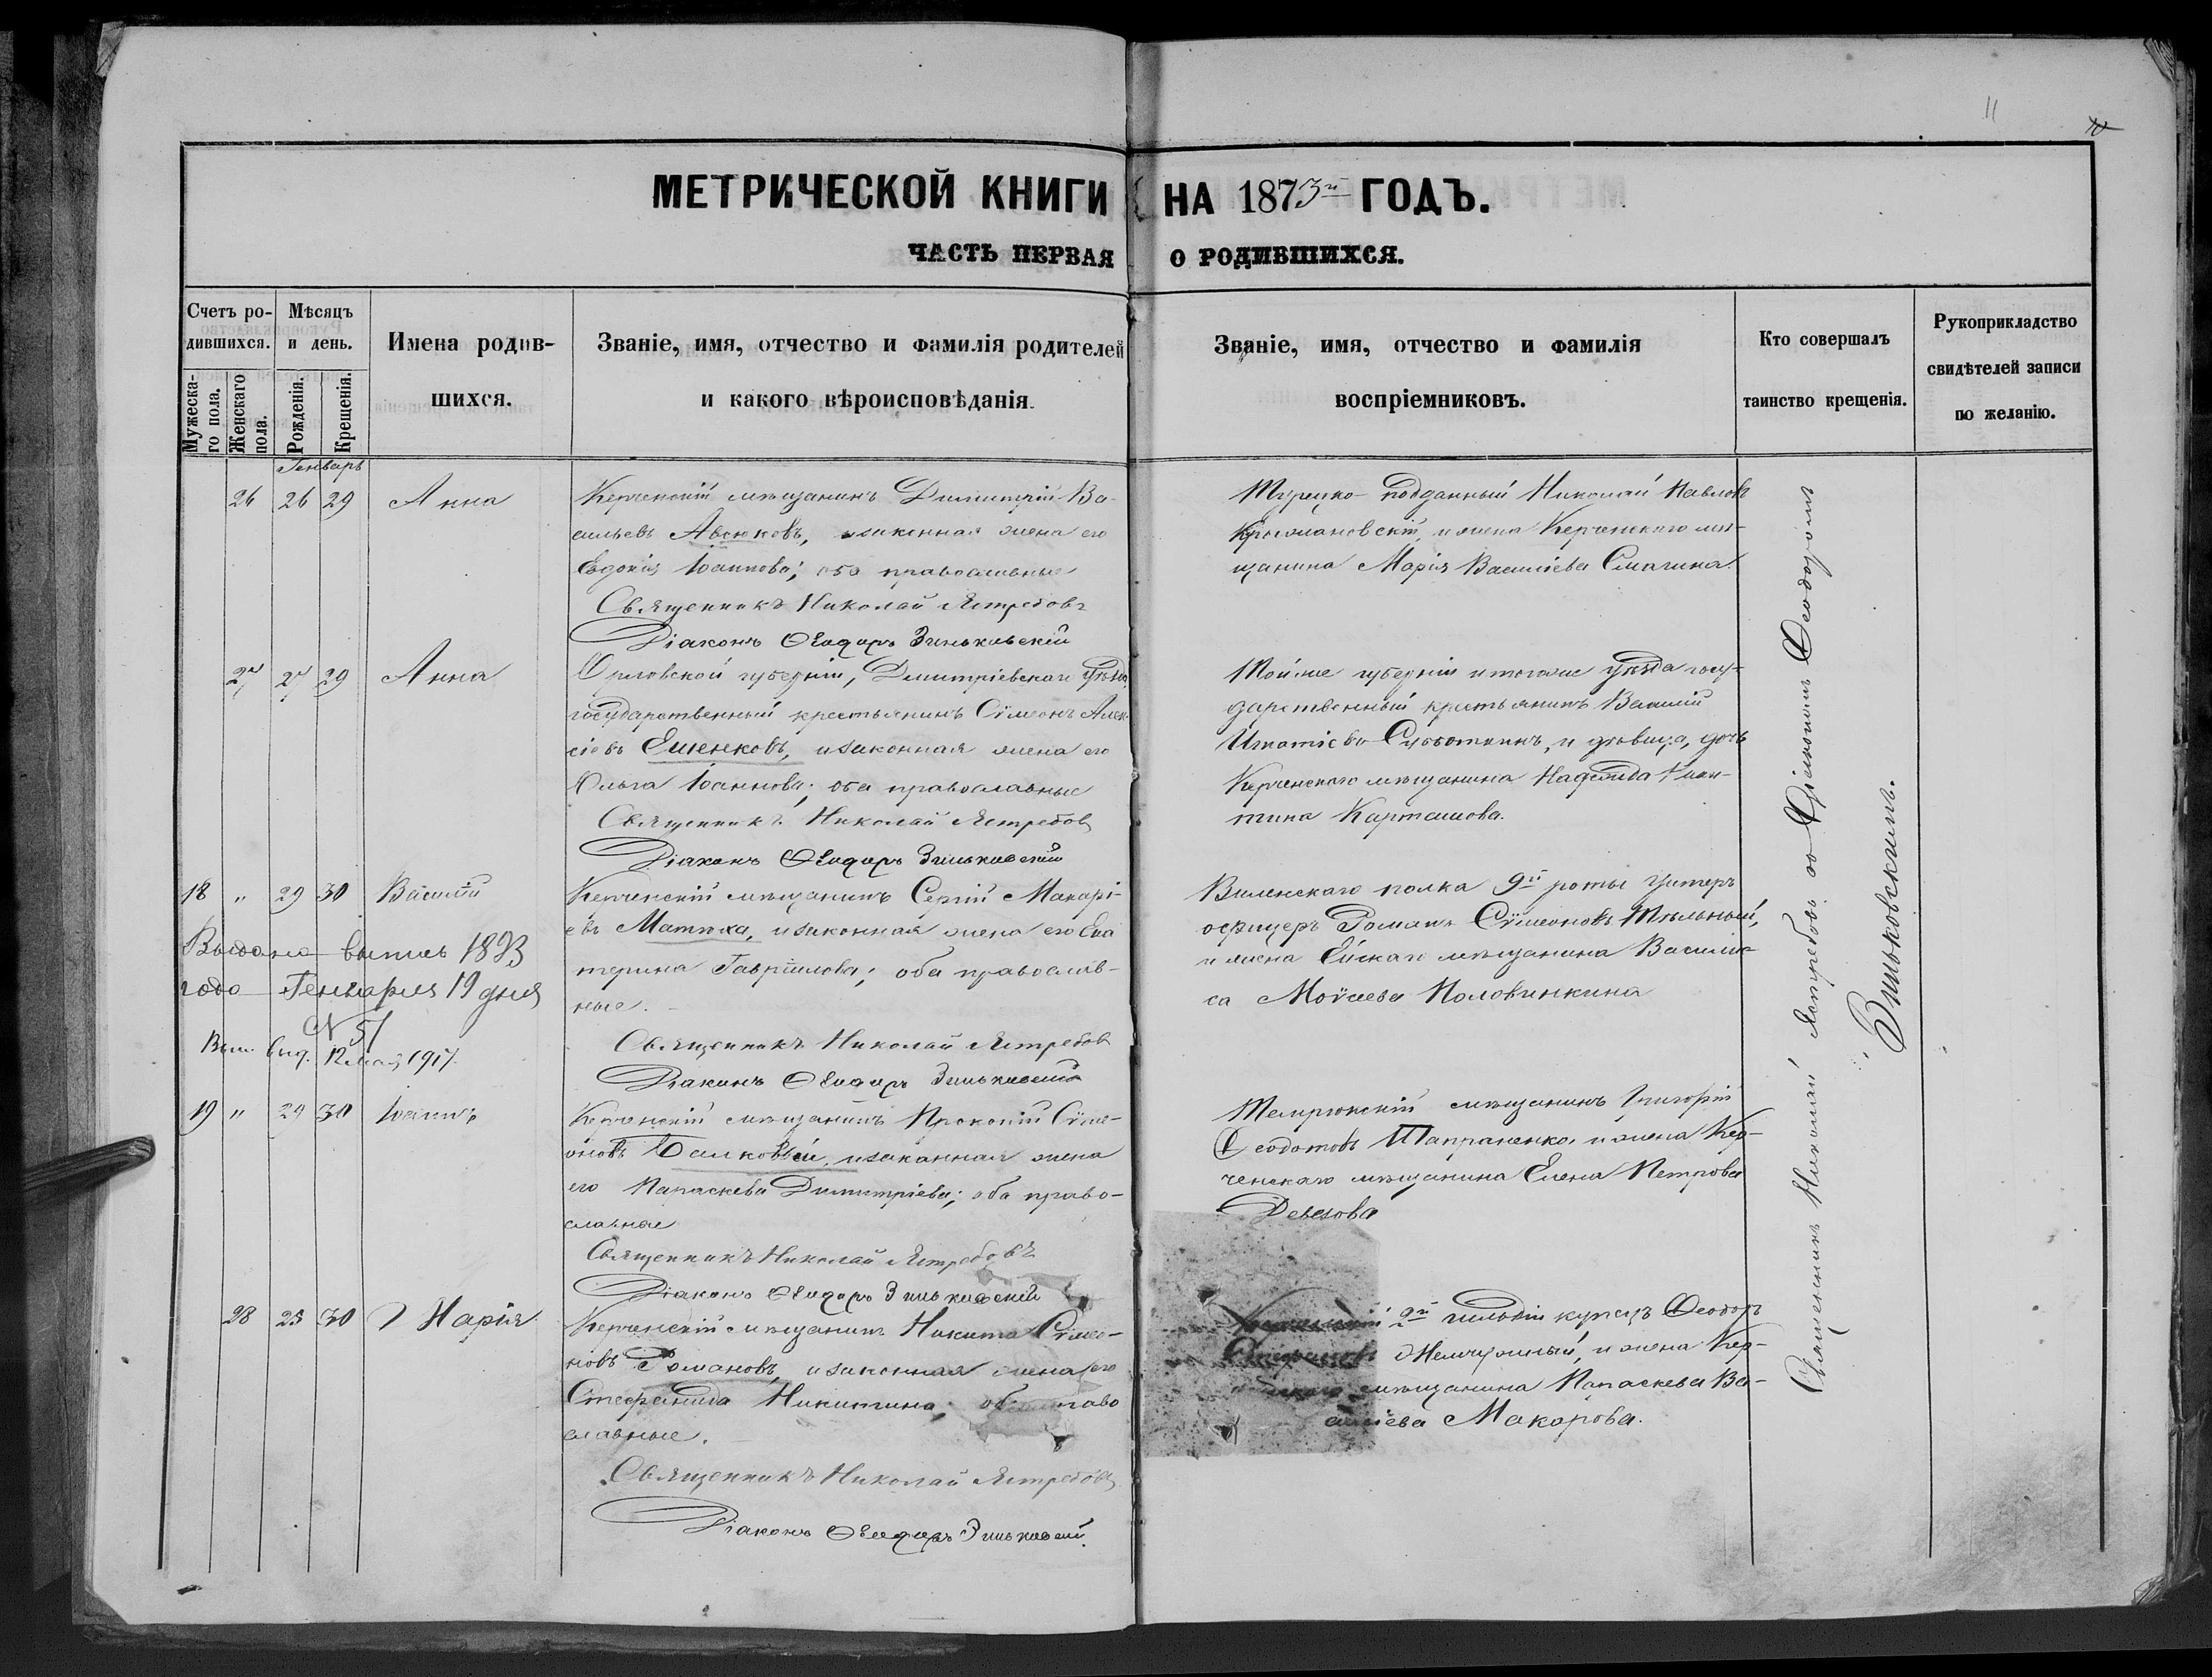 11
МЕТРИЧЕСКОЙ КНИГИ НА 1873й ГОДЪ.
ЧАСТЬ ПЕРВАЯ О РОДИВШИХСЯ.
Счетъ ро-
дившихся.
Мужеска-
го пола.
Женскаго
пола.
Мѣсяцъ
и день.
Рожденія.
Крещенія.
Имена родив-
шихся.
Званіе, имя, отчество и фамилія родителей
и какого вѣроисповѣданія.
Званіе, имя, отчество и фамилія
воспріемниковъ.
Кто совершалъ
таинство крещенія.
Рукоприкладство
свидѣтелей записи
по желанію.
Генварь
26 26 29 Анна
Керченскій мѣщанинъ Димитрій Ва-
сильевъ Авсюковъ, и законная жена его
Евдокія Іоаннова; оба православные
Священникъ Николай Ястребовъ
Діаконъ Ѳеодоръ Зиньковскій
Турецко-подданный Николай Павловъ
и жена Керченскаго мѣ-
щанина Марія Василіева Смагина.
27 27 29 Анна
Орловской губерніи, Димитріевскаго уѣзда,
государственный крестьянинъ Сѵмеонъ Алек-
сіевъ Ешенковъ, и законная жена его
Ольга Іоаннова; оба православные
Священникъ Николай Ястребовъ
Діаконъ Ѳеодоръ Зиньковскій
Той же губерніи и того же уѣзда госу-
дарственный крестьянинъ Василій
Игнатіевъ Субботинъ, и дѣвица, дочь
Керченскаго мѣщанина Надежда Ники-
тина Карташова.
18 " 29 30 Василій
Керченскій мѣщанинъ Сергій Макарі-
евъ Матюха, и законная жена его Ека
терина Гавріилова; оба православ-
ные.
Священникъ Николай Ястребовъ
Діаконъ Ѳеодоръ Зиньковскій
Виленскаго полка 9й роты унтеръ
офицеръ Романъ Сѵмеоновъ
и жена Ейскаго мѣщанина Васили-
са Моѵсеева Половинкина
Выдана выпись 1893
года Генваря 19 дня
N 51
Вып. выд. 12 мая 1917.
19 " 29 30 Іоаннъ
Керченскій мѣщанинъ Прокопій Сѵме-
оновъ и законная жена
его Параскева Димитріева; оба право-
славные
Священникъ Николай Ястребовъ
Діаконъ Ѳеодоръ Зиньковскій
Темрюкскій мѣщанинъ Григорій
Ѳеодотовъ Шапраненко и жена Кер-
ченскаго мѣщанина Елена Петрова
28 25 30 Марія
Керченскій мѣщанинъ Никита Сѵмео-
новъ Романовъ, и законная жена его
Стефанида Никитина; оба право
славные.
Священникъ Николай Ястребовъ
Діаконъ Ѳеодоръ Зиньковскій.
2й гильдіи купецъ Ѳеодоръ
Стефановъ Жемчужный, и жена Кер-
ченскаго мѣщанина Параскева Ва-
силіева Макарова.
Священникъ Николай Ястребовъ съ Діакономъ Ѳеодоромъ
Зиньковскимъ.